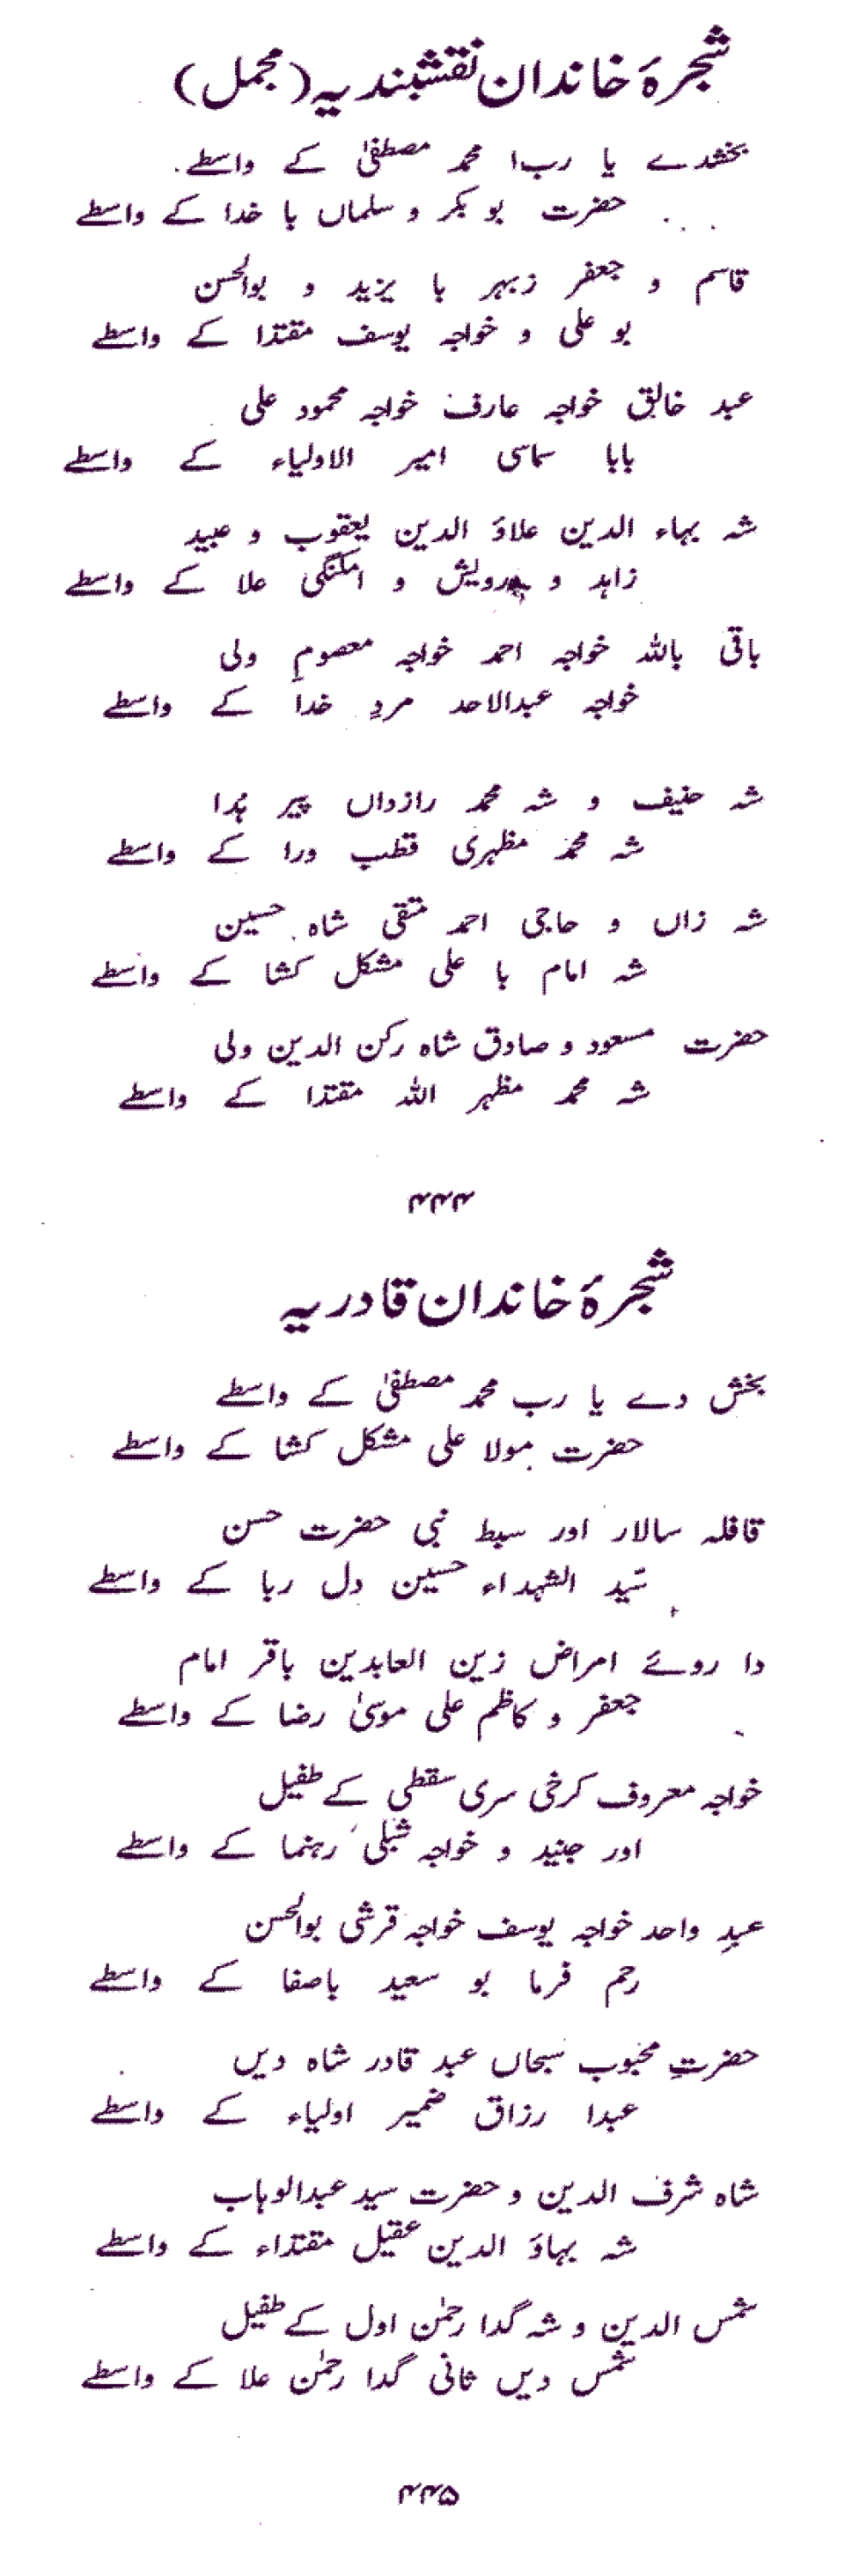 شجرۂ خاندان نقشبندیہ (مجمل)
بخشدے یا رب ا محمد مصطفیٰ کے واسطے
حضرت بو بکر و سلماں با خدا کے واسطے
قاسم و جعفر زہبر با یزید و بوالحسن
بو علی و خواجہ یوسف مقتدا کے واسطے
عبد خالق خواجہ عارف خواجہ محمود علی
بابا سماسی امیر الاولیاء کے واسطے
شہ بہاء الدین علاؤ الدین یعقوب و عبید
زاہد و درویش و امکنگی علا کے واسطے
باقی باللہ خواجہ احمد خواجہ معصومِ ولی
خواجہ عبدالاحد مردِ خدا کے واسطے
شہ حنیف و شہ محمد رازداں پیر ہُدا
شہ محمد مظہری قطب ورا کے واسطے
شہ زاں و حاجی احمد متقی شاہ حسین
شہ امام با علی مشکل کشا کے واسطے
حضرت مسعود و صادق شاہ رکن الدین ولی
شہ محمد مظہر اللہ مقتدا کے واسطے
۴۴۴
شجرۂ خاندان قادریہ
بخش دے یا رب محمد مصطفیٰ کے واسطے
حضرت مولا علی مشکل کشا کے واسطے
قافلہ سالار اور سبط نبی حضرت حسن
سّید الشہداء حسین دل ربا کے واسطے
دا روئے امراض زین العابدین باقر امام
جعفر و کاظم علی موسیٰ رضا کے واسطے
خواجہ معروف کرخی سری سقطی کے طفیل
اور جنید و خواجہ شبلی رہنما کے واسطے
عبدِ واحد خواجہ یوسف خواجہ قرشی بوالحسن
رحم فرما بو سعید باصفا کے واسطے
حضرتِ محبوب سبحاں عبد قادر شاہ دیں
عبدا رزاق ضمیر اولیاء کے واسطے
شاہ شرف الدین و حضرت سید عبدالوہاب
شہ بہاؤ الدین عقیل مقتداء کے واسطے
شمس الدین و شہ گدا رحمٰن اول کے طفیل
شمس دیں ثانی گدا رحمٰن علا کے واسطے
۴۴۵